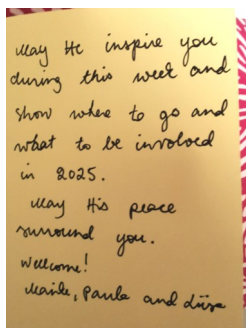 May He inspire you
during this week and
show where to go and
what to be involved
in 2025.
May His peace
surround you.
Wellcome!
Paula and Liisa